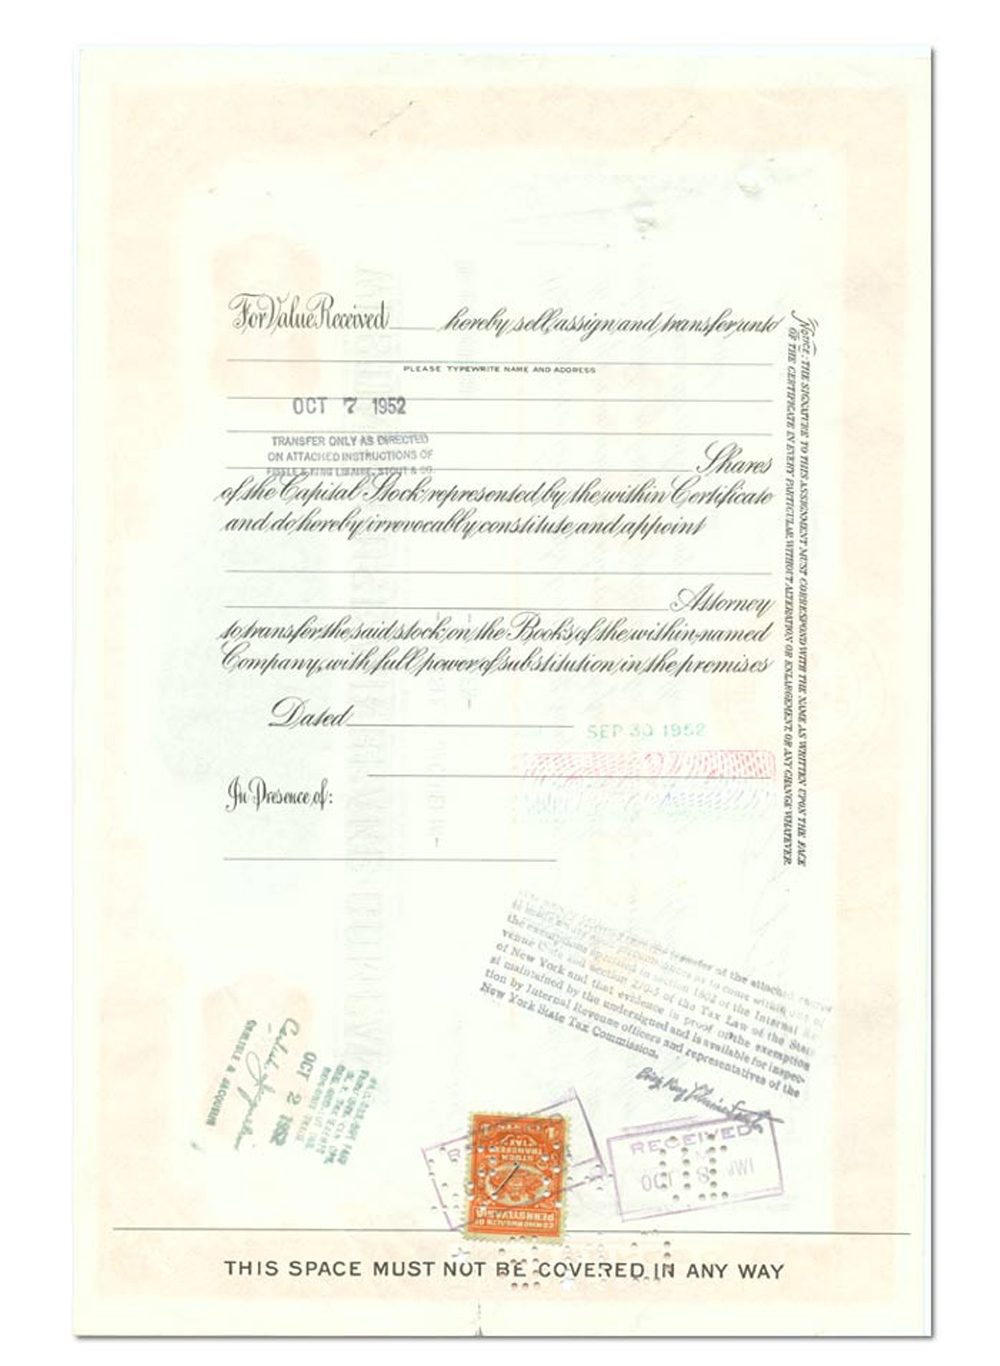 For Value Received hereby sell, assign and transfer unto
PLEASE TYPEWRITE NAME AND ADDRESS
OCT 7 1952
TRANSFER ONLY AS DIRECTED
ON ATTACHED INSTRUCTIONS OF
KING LIBAIRE, STOUT & CO.
Shares
of the Capital Stock represented by the within Certificate
and do hereby irrevocably constitute and appoint
Attorney
to transfer the said stock on the Books of the within-named
Company, with full power of substitution in the premises
Dated
SEP 30 1952
In Presence of:
NOTICE: THE SIGNATURE TO THIS ASSIGNMENT MUST CORRESPOND WITH THE NAME AS WRITTEN UPON THE FACE
OF THE CERTIFICATE IN EVERY PARTICULAR, WITHOUT ALTERATION OR ENLARGEMENT, OR ANY CHANGE WHATEVER.
transfer of the attached
the exemptions specified in section 1802 of the Internal
venue Code and section 270-5 of the Tax Law of the State
of New York and that evidence in proof of the exemption
is maintained by the undersigned and is available for inspec-
tion by Internal Revenue officers and representatives of the
New York State Tax Commission.
CARLISLE & JACQUELIN
OCT 2 1952
COMMONWEALTH OF
PENNSYLVANIA
STOCK
TRANSFER
TAX
RECEIVED
OCT 8
THIS SPACE MUST NOT BE COVERED IN ANY WAY